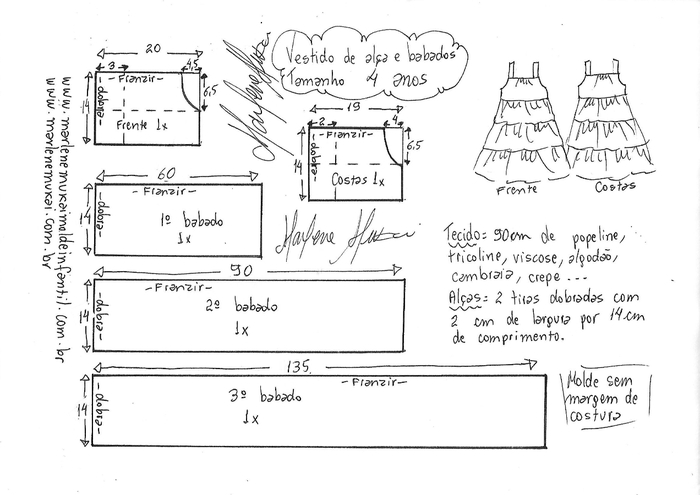 Vestido de alça e babados
Tamanho 4 anos
20
3
4,5
-Franzir-
6,5
14
-dobra-
Frente 1x
19
2
4
-Franzir-
6.5
14
dobra-
Costas 1x
Frente
Costas
60
-Franzir-
14
-dobra-
1º babado
1x
Marlene Mukai
90
-Franzir-
14
-dobra-
2º babado
1x
135
-Franzir-
14
-dobra-
3º babado
1x
Tecido: 90cm de popeline,
tricoline, viscose, algodão,
cambraia, crepe ...
Alças: 2 tiras dobradas com
2 cm de largura por 14cm
de comprimento.
Molde sem
margem de
costura
www.marlenemukaimoldeinfantil.com.br
www.marlenemukai.com.br